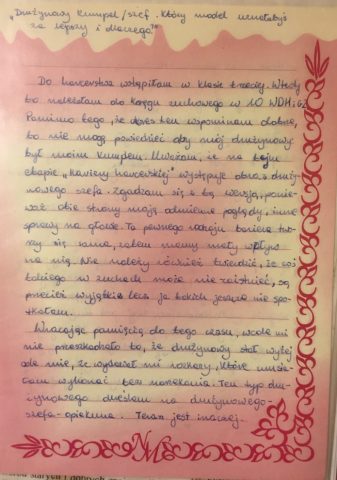 „Drużynowy kumpel/szef. Który model uznałabyś
za lepszy i dlaczego?"
Do harcerstwa wstąpiłam w klasie trzeciej. Wtedy
to należałam do kręgu zuchowego w 10 WDH i GZ
Pomimo tego, że okres ten wspominam dobrze,
to nie mogę powiedzieć aby mój drużynowy
był moim kumplem. Uważam, że na tym
etapie „kariery harcerskiej" występuje obraz druży-
nowego szefa. Zgadzam się z tą wersją, ponie-
waż obie strony mają odmienne poglądy, inne
sprawy na głowie. Ta pewnego rodzaju bariera two-
rzy się sama, zatem mamy mały wpływ
na nią. Nie należy również twierdzić, że coś
takiego w zuchach może nie zaistnieć, są
przecież wyjątki lecz ja takich jeszcze nie spo-
tkałam.
Wracając pamięcią do tego czasu, wcale mi
nie przeszkadzało to, że drużynowy stał wyżej
ode mnie, że wydawał mi rozkazy, które musia-
łam wykonać bez narzekania. Ten typ dru-
żynowego określam na drużynowego-
szefa-opiekuna. Teraz jest inaczej.
NM
starych i dobrych